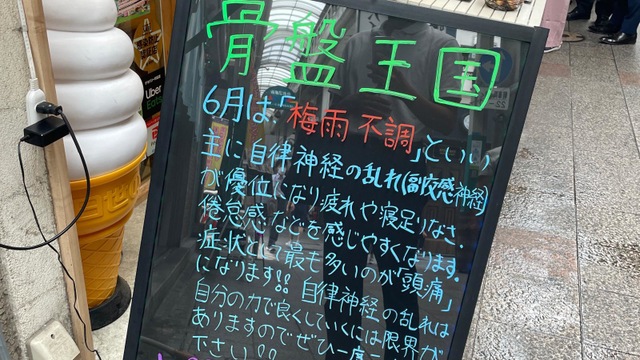 骨盤王国
6月は「梅雨不調」といい
主に自律神経の乱れ(副交感神経)
が優位になり疲れや寝足りなさ.
倦怠感などを感じやすくなります.
症状として最も多いのが「頭痛」
になります!! 自律神経の乱れは
自分の力で良くしていくには限界が
ありますのでぜひ一度ご
下さい!!
Uber